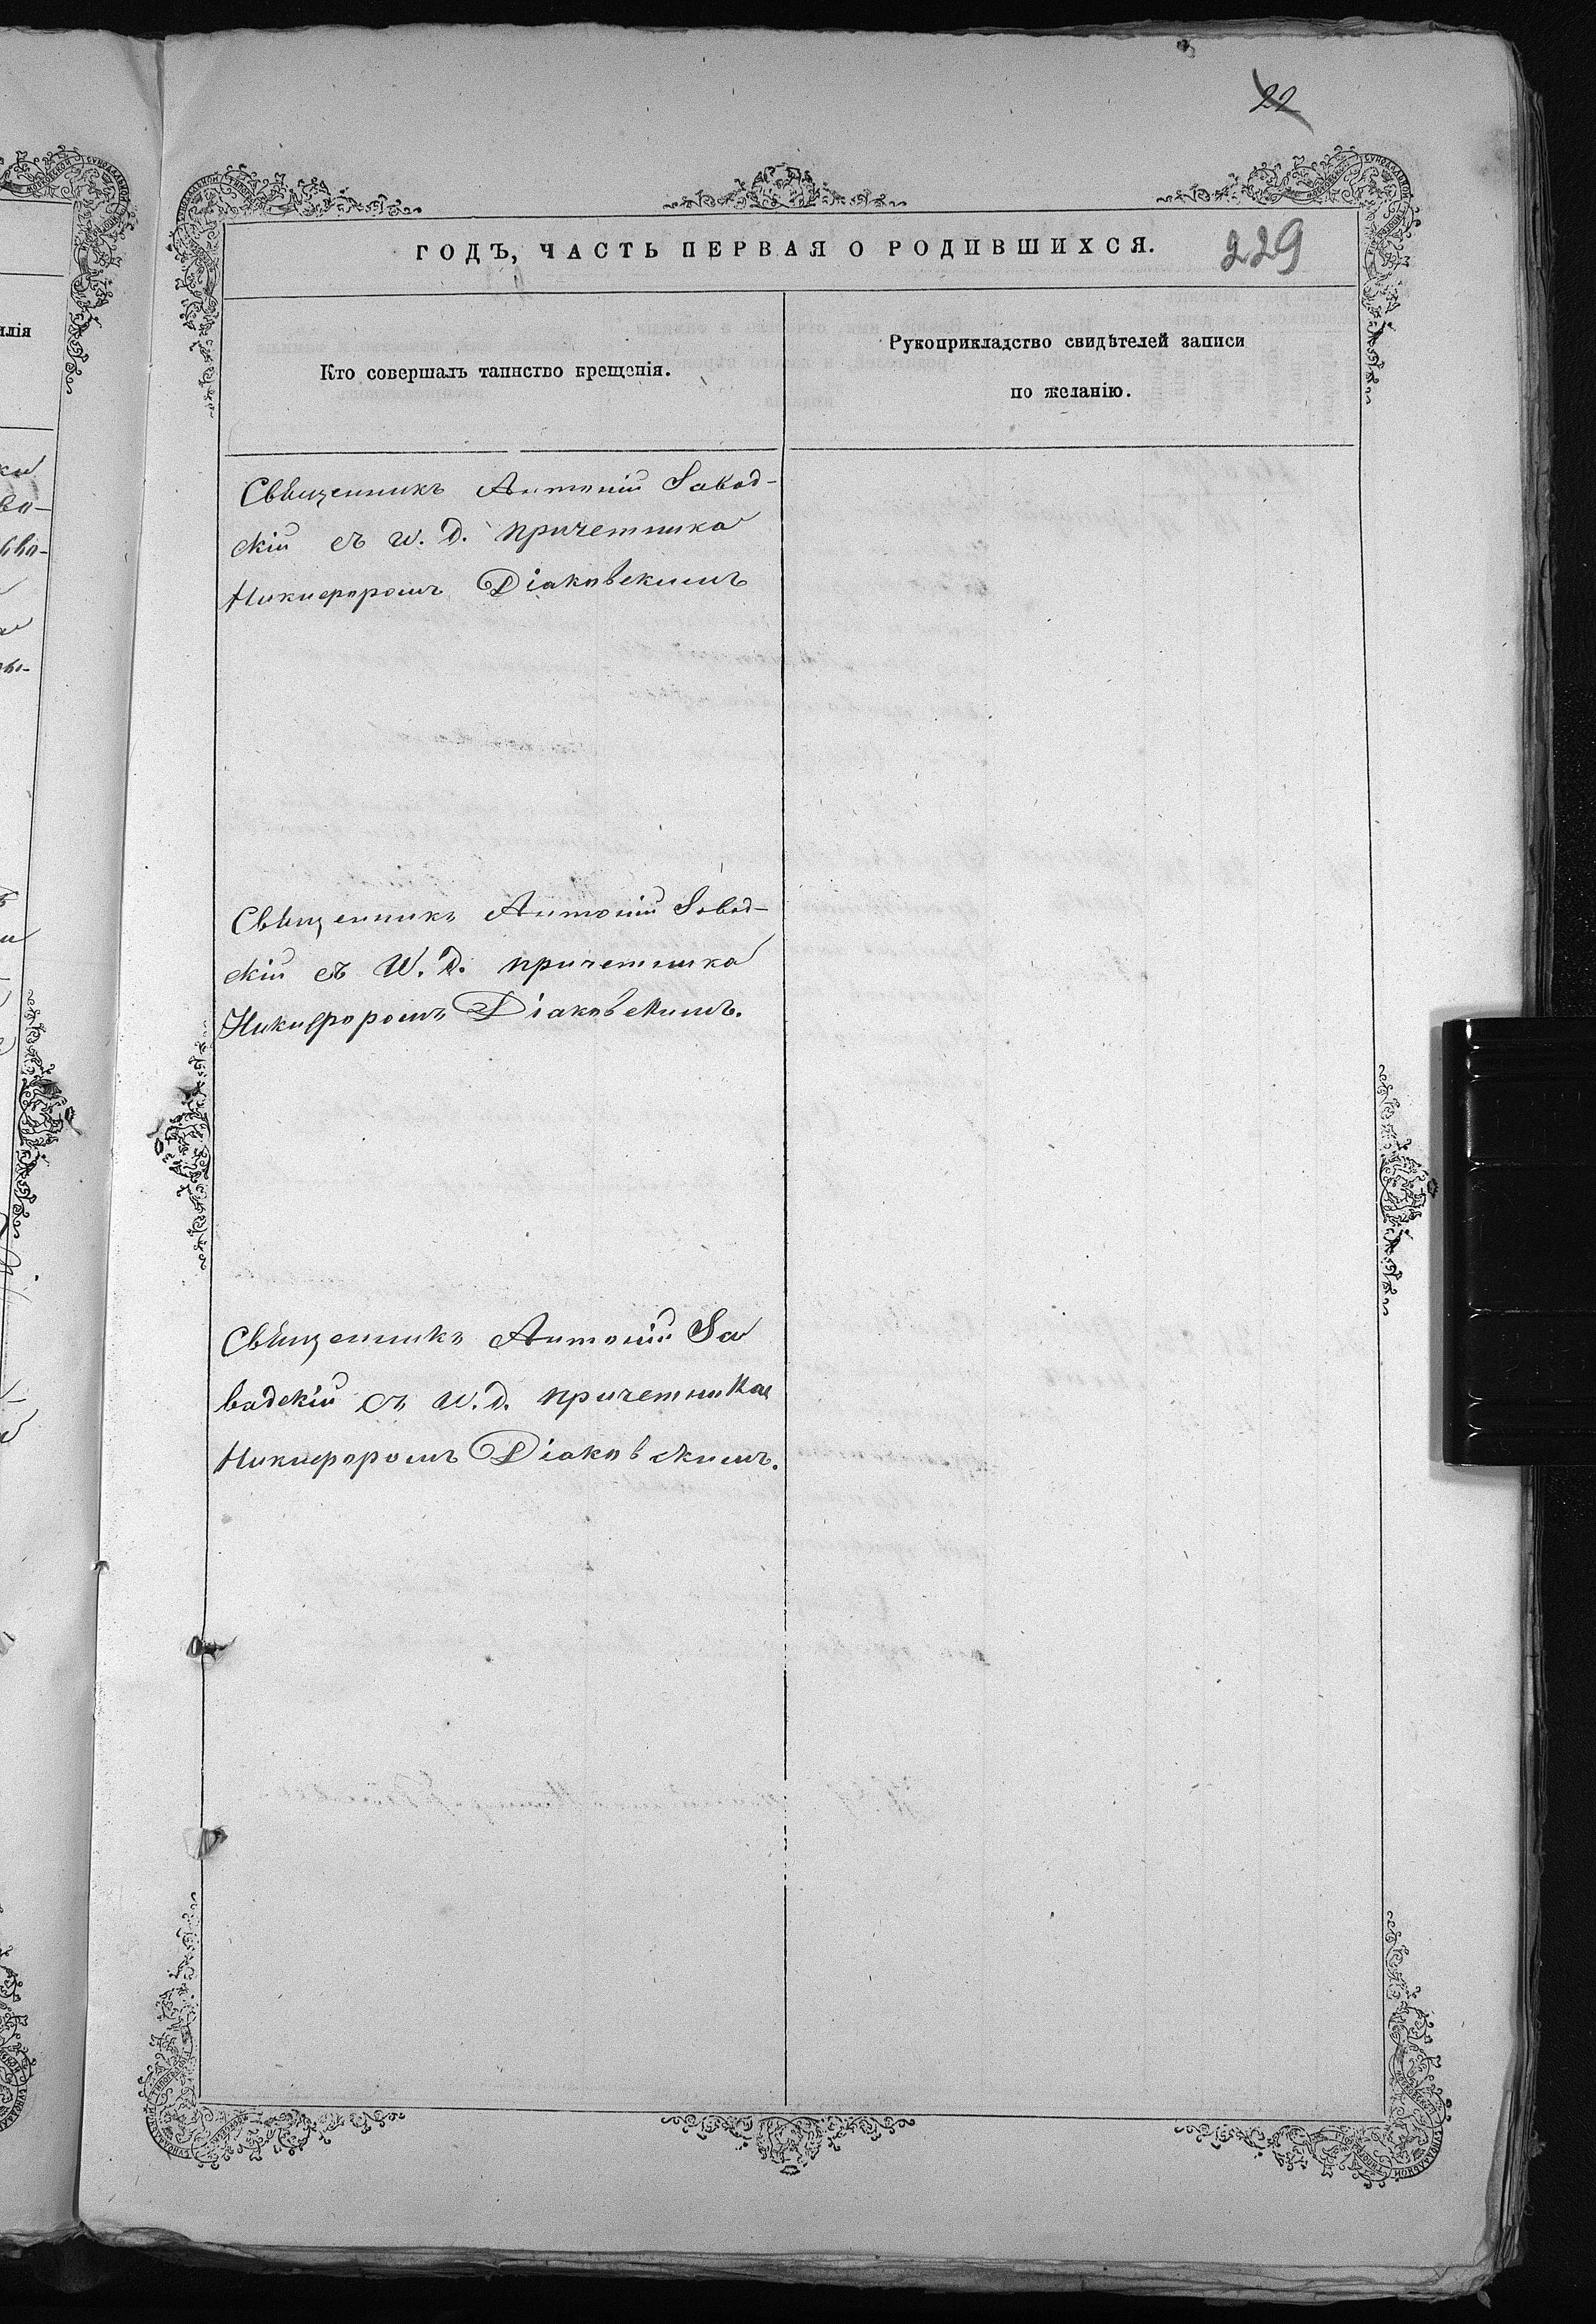 22
ГОДЪ, ЧАСТЬ ПЕРВАЯ О РОДИВШИХСЯ.
229
Кто совершалъ таинство крещенія.
Рукоприкладство свидѣтелей записи
по желанію.
Священникъ Антоній Завад-
скій съ и. д. причетника
Никифоромъ Діаковскимъ
Священникъ Антоній Завад-
скій съ И. д. причетника
Никифоромъ Діаковскимъ.
Священникъ Антоній За
вадскій съ и. д. причетника
Никифоромъ Діаковскимъ.